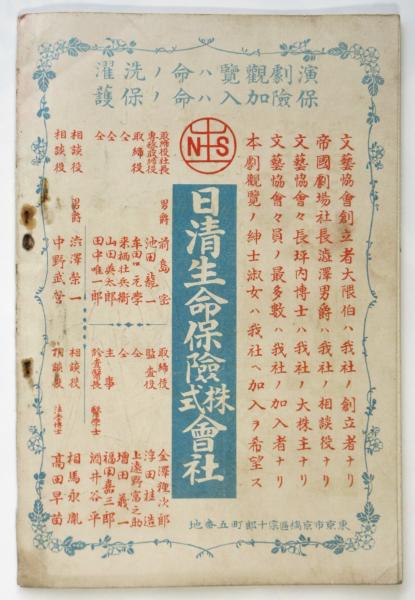 演劇觀覽ハ命ノ洗濯
保險加入ハ命ノ保護
NS
文藝協會創立者大隈伯ハ我社ノ創立者ナリ
帝國劇場社長澁澤男爵ハ我社ノ相談役ナリ
文藝協會々長坪内博士ハ我社ノ大株主ナリ
文藝協會々員ノ最多數ハ我社ノ加入者ナリ
本劇觀覽ノ紳士淑女ハ我社ヘ加入ヲ希望ス
日清生命保險株式會社
取締役社長 男爵 前島密
專務取締役 池田龍一
取締役
仝
仝 山田英太郎
仝 田中唯一郎
相談役 男爵 澁澤榮一
相談役 中野武營
取締役 金澤種次郎
監査役 浮田桂造
仝 上遠野富之助
主事 増田義一
醫學士 福田嘉三郎
酒井谷平
相談役 相馬永胤
相談役 法學博士 高田早苗
東京市京橋區宗十郎町五番地